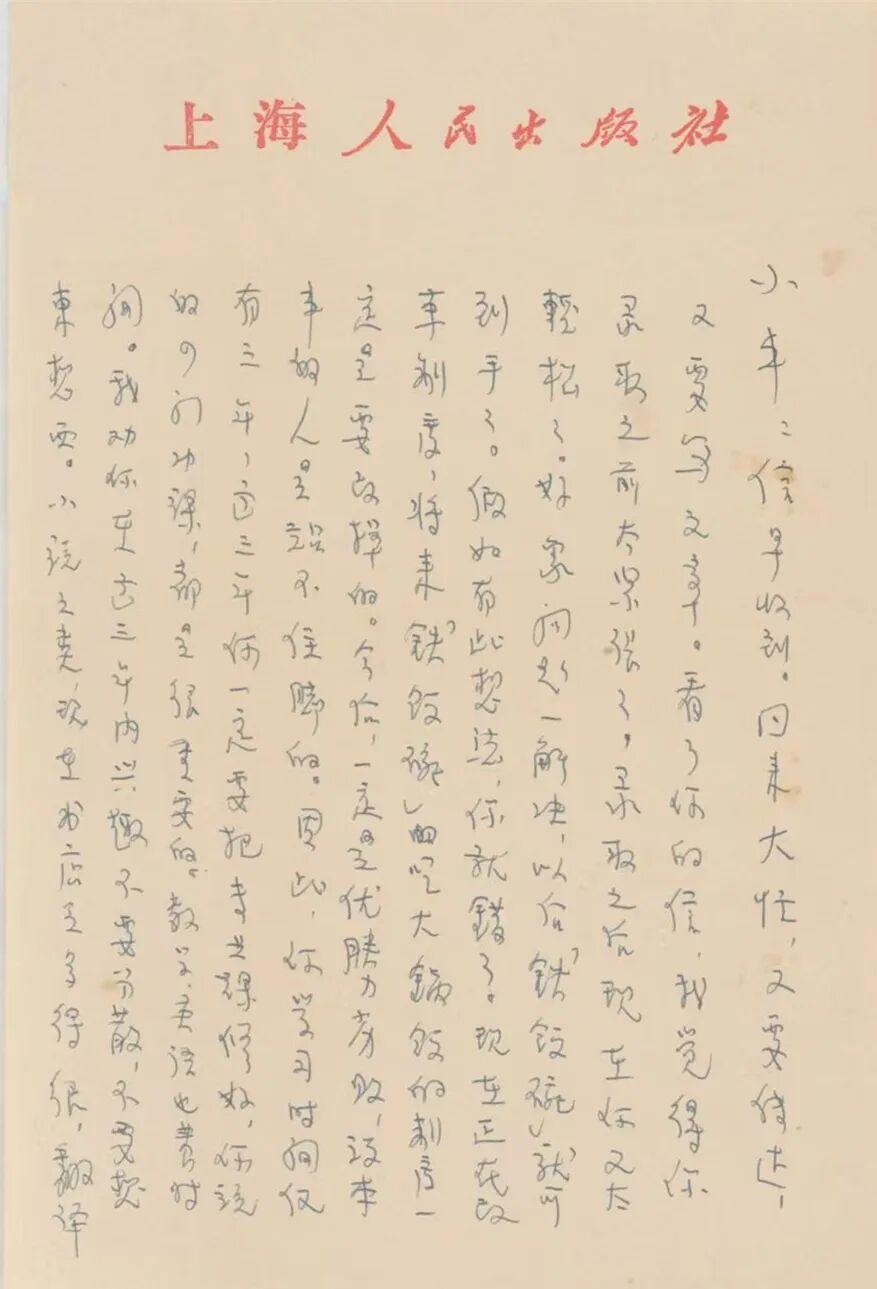 上海人民出版社
小丰：信早收到。回来大忙，又要传达，
又要写文章。看了你的信，我觉得你
录取之前太紧张了，录取之后现在你又太
轻松了。好象问题一解决，以后“铁饭碗”就可
到手了。假如有此想法，你就错了。现在正在改
革制度，将来“铁饭碗”吃大锅饭的制度一
定是要改掉的。今后，一定是优胜劣败，没本
事的人是站不住脚的。因此，你学习时间仅
有三年，这三年你一定要把专业课修好，你说
的几门功课，都是很重要的。数学、英语也费时
间。我劝你在这三年内兴趣不要分散，不要想
东想西。小说之类，现在书店是多得很，翻译